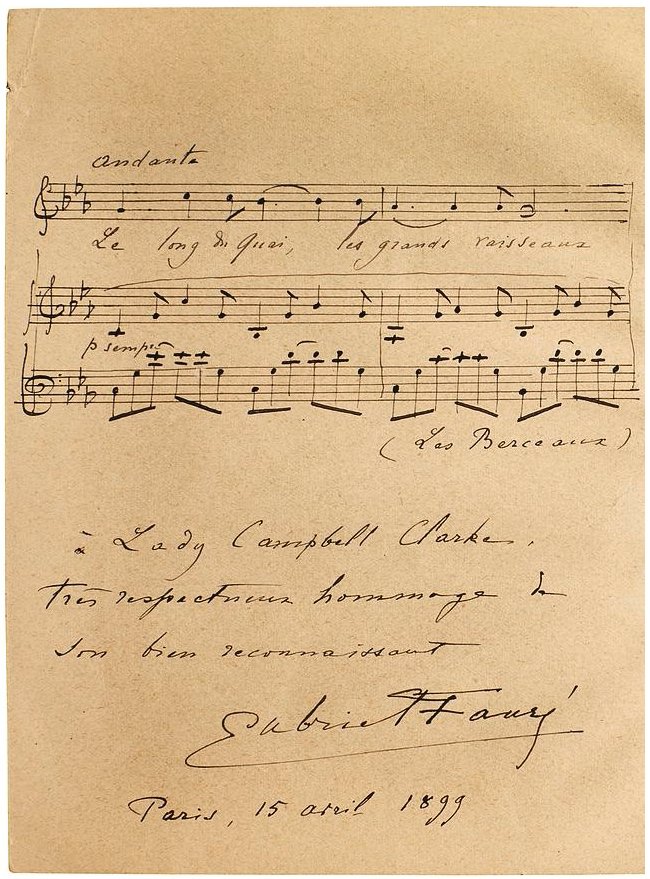 Andante
Le long du Quai, les grands vaisseaux
p sempre
(Les Berceaux)
à Lady Campbell Clarke,
très respectueux hommage de
son bien reconnaissant
Gabriel Fauré
Paris, 15 avril 1899